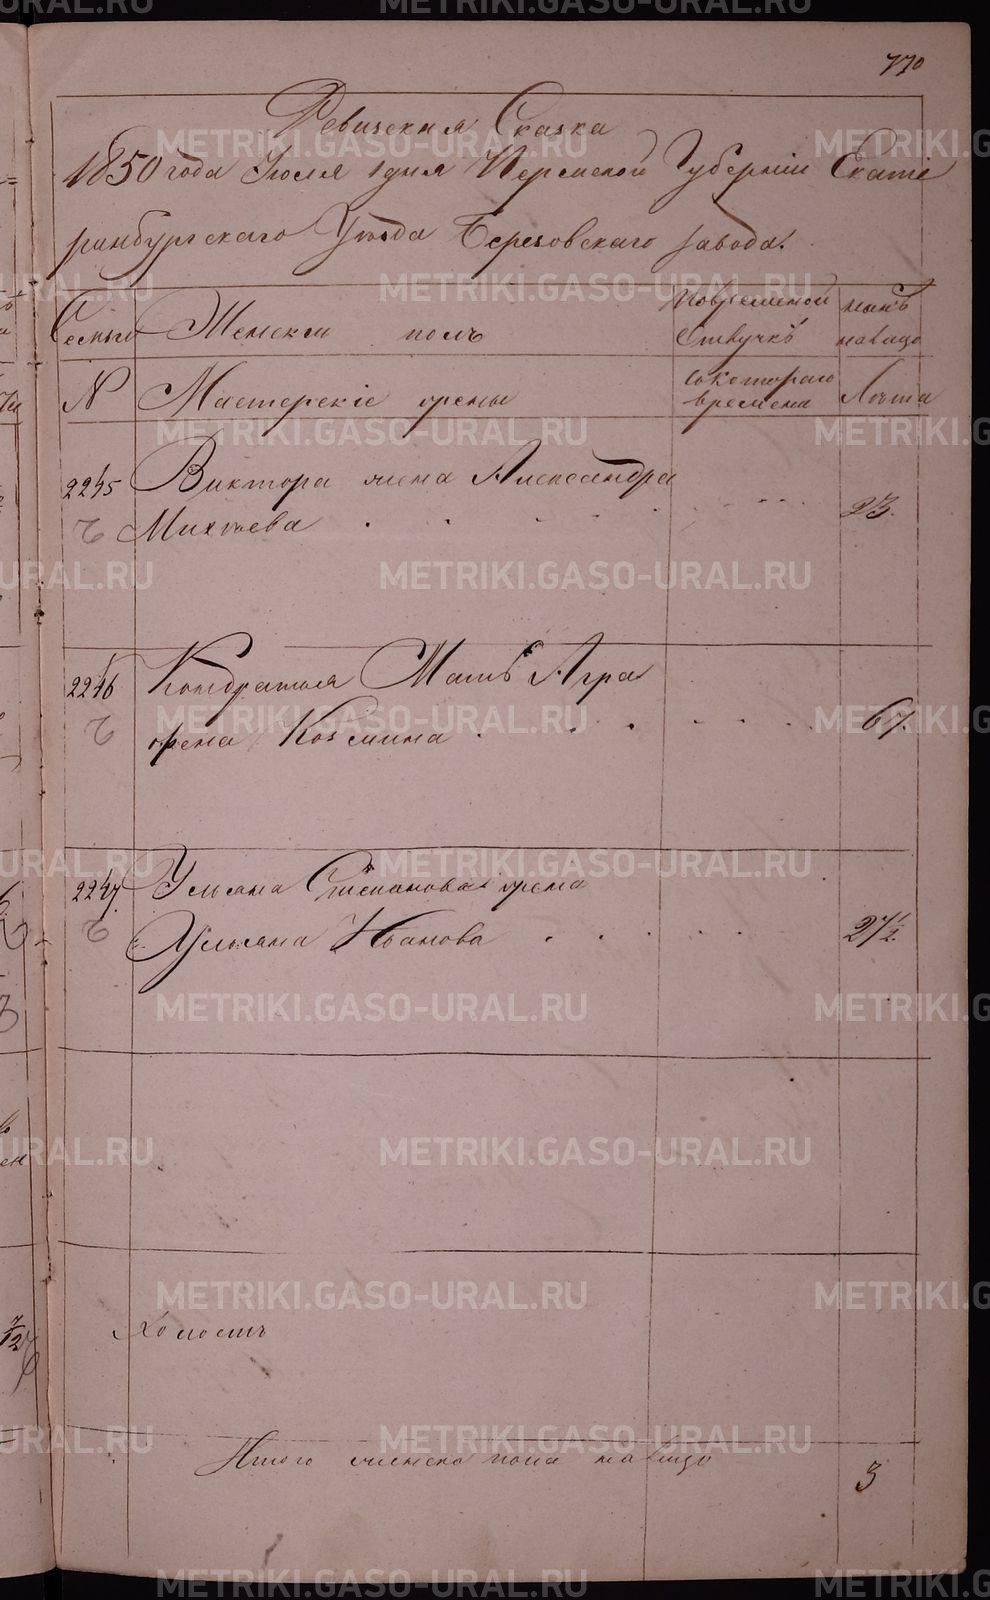 770
Ревизская Сказка
1850 года Июля 1 дня Пермской Губерніи Екате
ринбургскаго Уѣзда Березовскаго завода.
Семьи Женски полъ
Во временной Отлучкѣ
нынѣ на лицо
N Мастерскіе жены
Съ котораго времени
Лѣта
2245 Виктора жена Александра
Михѣева . . . . . . . 23.
2246 Кондратья Мать Агра
фена Козмина . . . . . . . 67.
2247. Ульяна Степанова жена
Ульяна Иванова . . . . . 27 1/2.
Холостъ
Итого женска пола на лицо 3
METRIKI.GASO-URAL.RU